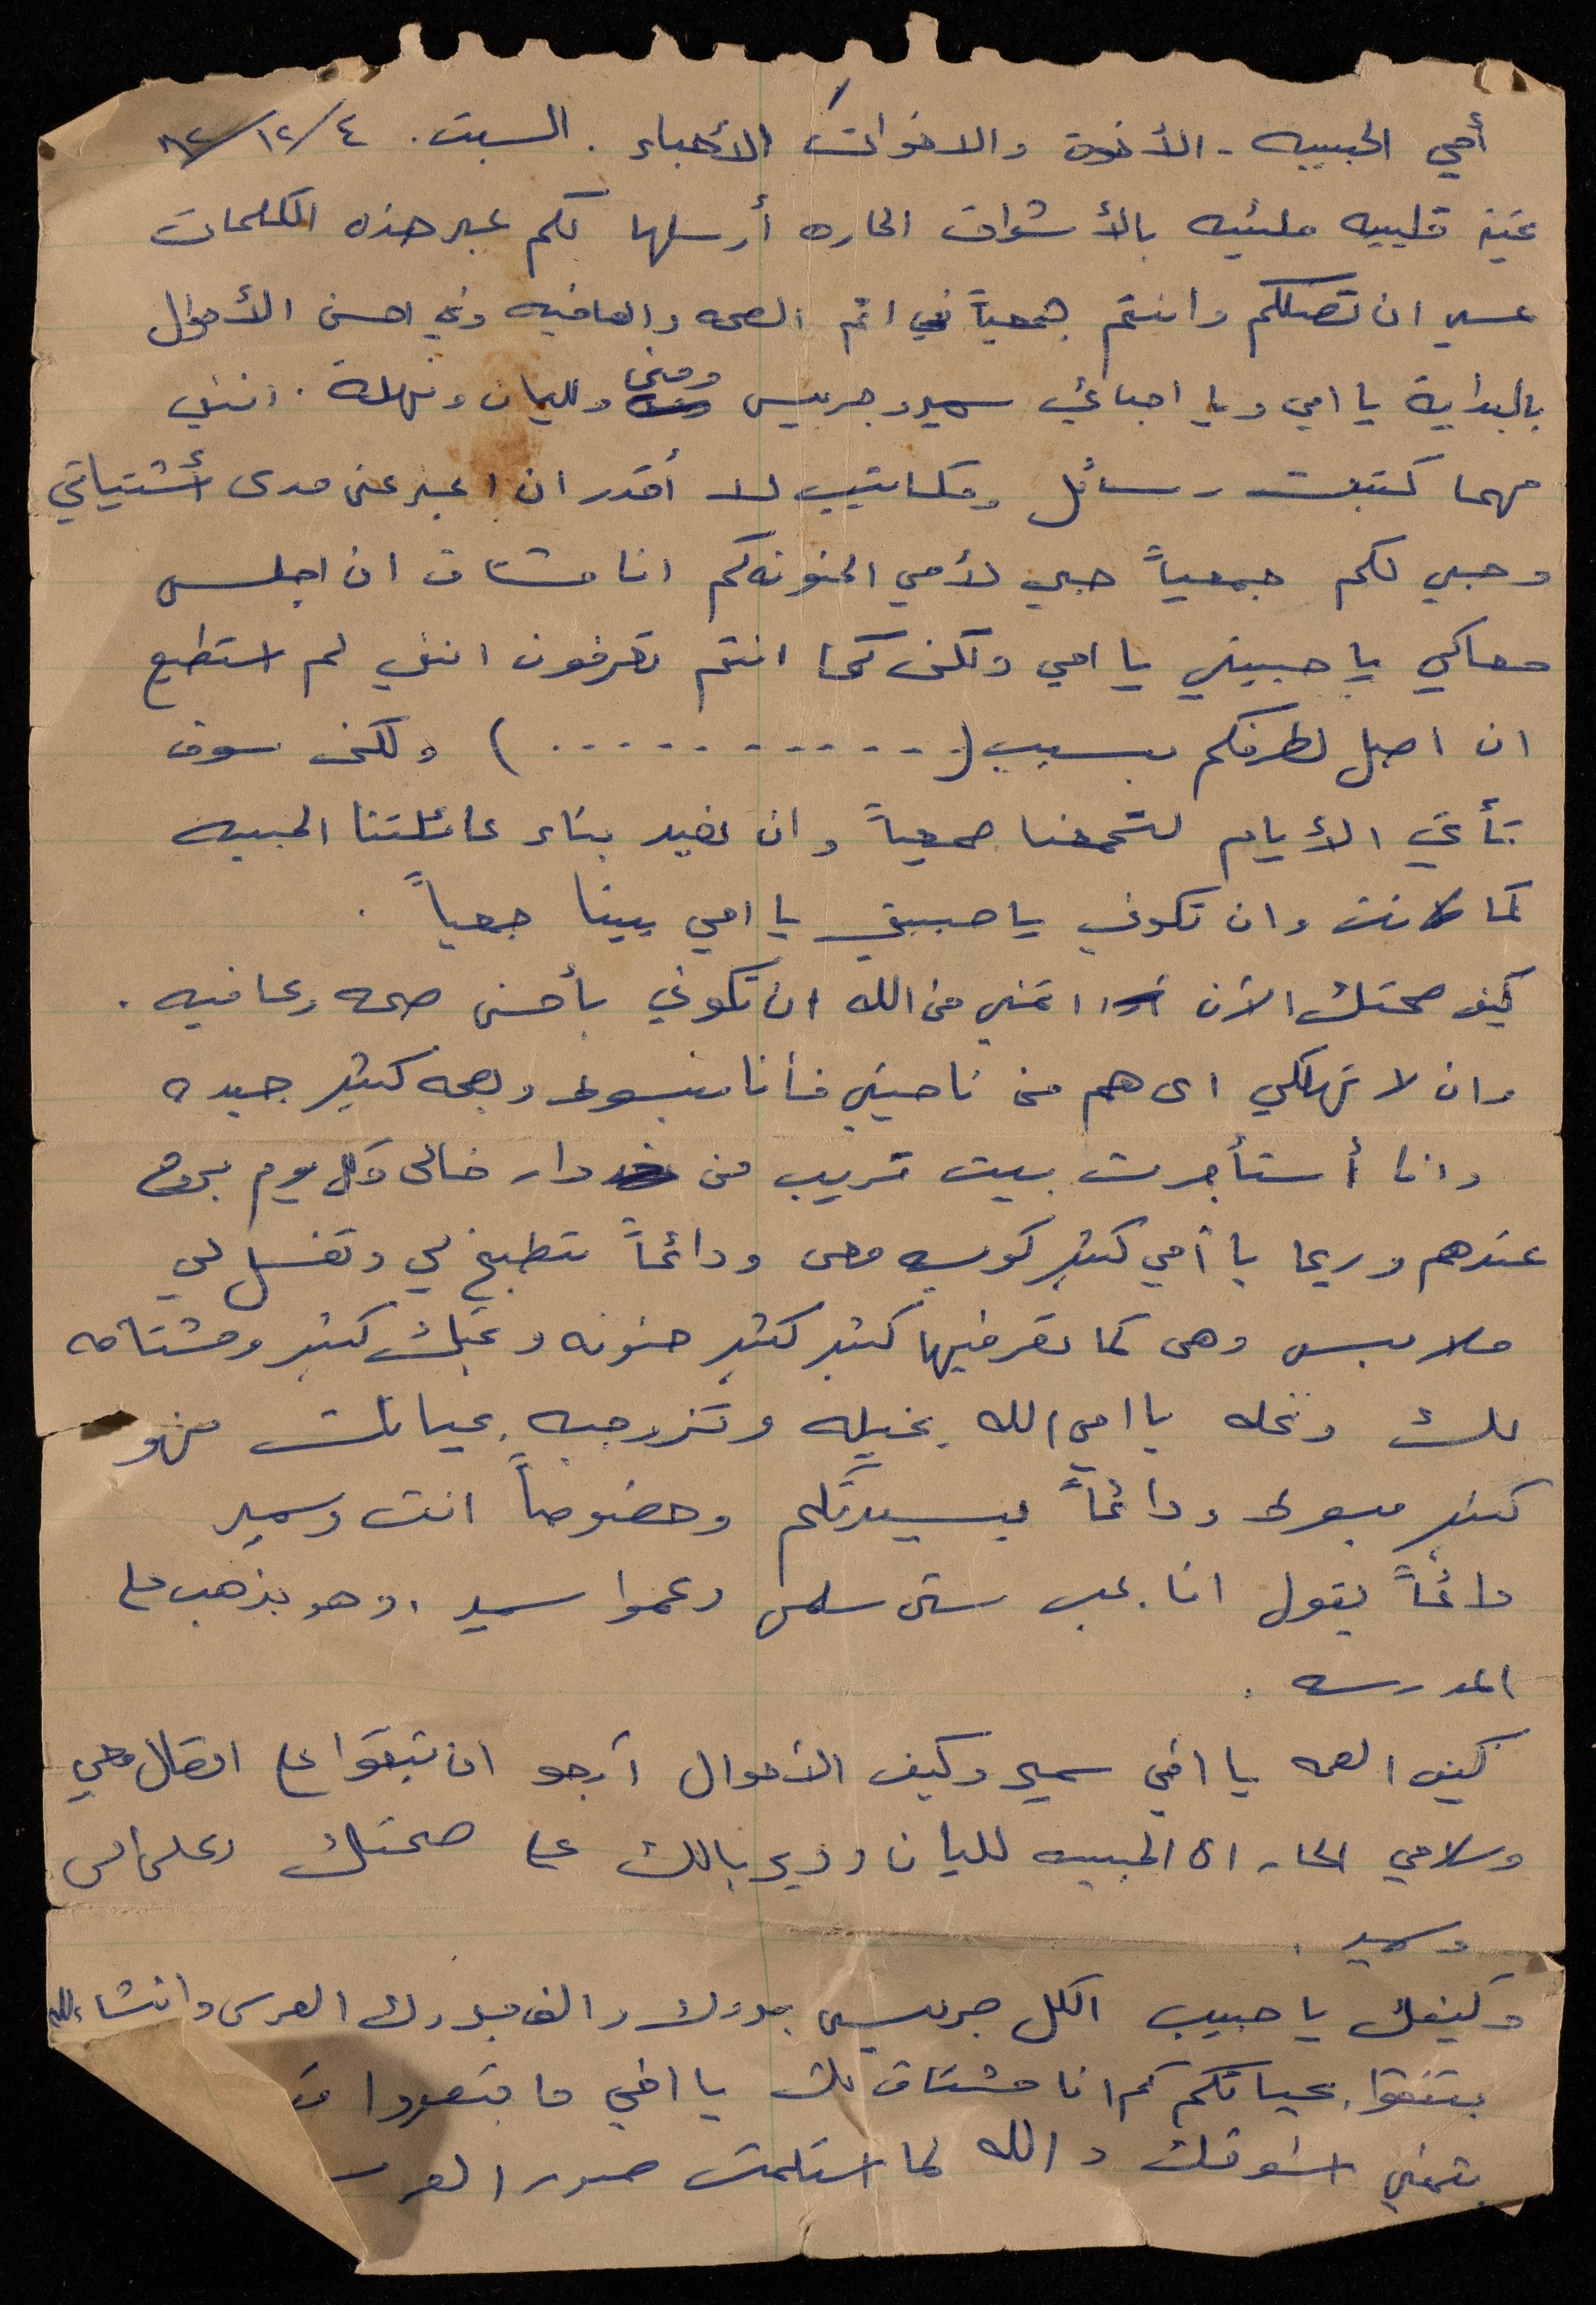 أمي الحبيبه - الأخوة والاخوات الأحباء . السبت . ٤/١٢/٨٢
تحية قلبيه مليئيه بالأشواق الحاره أرسلها لكم عبر هذه الكلمات
عسى ان تصلكم وانتم جمعياً في اتم الصحه والعافيه وفي احسن الأحوال
بالبداية يا امي ويا احبائي سمير وجريس ومنى وليان ونهلة . انني
مهما كتبت رسائل ومكاتيب لا أقدر ان اعبر عن مدى أشتياقي
وحبي لكم جمعياً حبي لأمي الحنونه كم انا مشتاق ان اجلس
معاكي يا حبيبتي يا امي ولكن كما انتم تعرفون انني لم استطع
ان اصل لطرفكم بسبب (. . . . . . . . . . . .) ولكن سوف
تأتي الأيام لتجمعنا جمعياً وان نعيد بناء عائلتنا الحبيبه
كما كانت وان تكوني يا حبيبتي يا امي بيننا جمعياً .
كيف صحتك الآن اتمنى من الله ان تكوني بأحسن صحه وعافيه .
وان لا تهلكي اى هم من ناحيتي فأنا مبسوط وبصحه كثير جيده
وانا أستأجرت بيت قريب من دار خالى وكل يوم بروح
عندهم وريما يا أمي كثير كويسه معى ودائماً بتطبخ لي وتغسل لي
ملابسي وهى كما تعرفيها كثير كثير حنونه وبتحبك كثير ومشتاقه
لك ونخله يا امي الله يخيله وتزوجيه بحياتك فهو
كثير مبسوط ودائماً بسيرتكم وخصوصاً انت وسمير
دائماً يقول انا بحب ستى سلمى وعموا سمير . وهو يذهب على
المدرسه .
كيف الصحه يا اخي سمير وكيف الأحوال أرجو ان تبقوا على اتصال معي
وسلامي الحار الى الحبيبه لليان ودير بالك على صحتك وعلى امى
وسمير .
وكيفك يا حبيب الكل جريس مبروك والف مبروك العرس وانشاءالله
بتتهنوا بحياتكم كم انا مشتاق لك يا اخي ما بتصوروا
بتمنى اشوفك والله لما استلمت صور العر